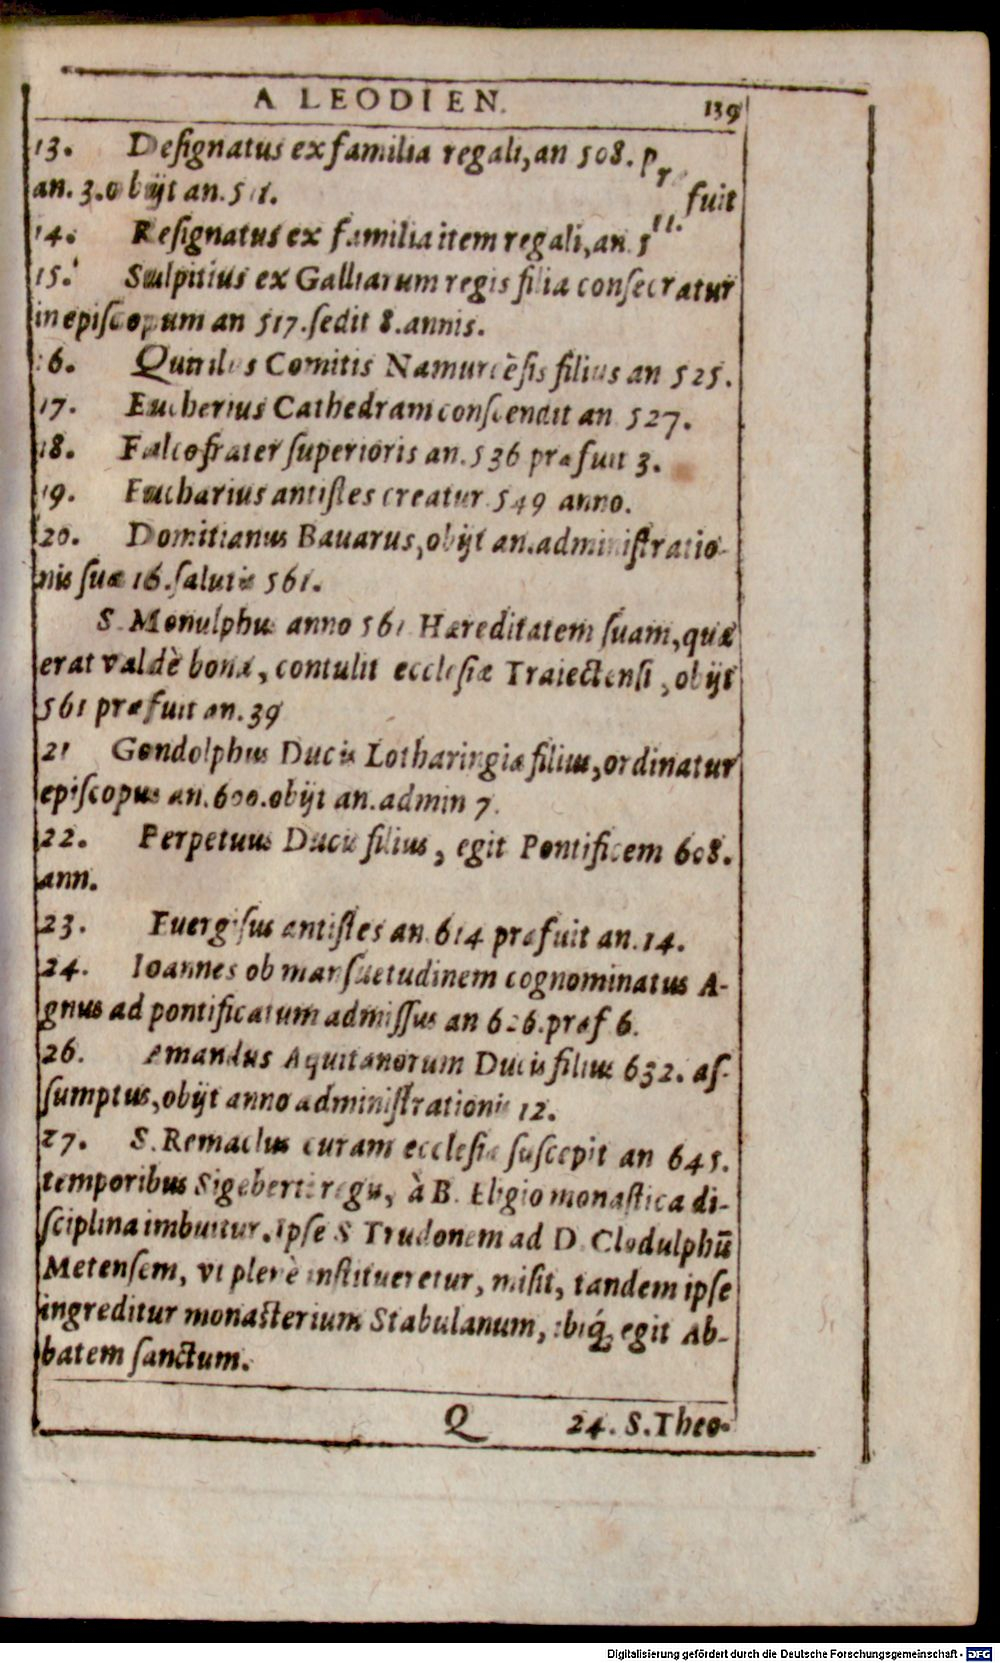 A LEODIEN. 139
13. Deſignatus ex familia regali, an 508. præfuit
an. 3. obijt an. 511.
14. Reſignatus ex familia item regali, an. 511.
15. Sulpitius ex Galliarum regis filia conſecratur
in epiſcopum an 517. ſedit 8. annis.
16. Quirilus Comitis Namurcēſis filius an 525.
17. Eucherius Cathedram conſcendit an 527.
18. Falco frater ſuperioris an. 536 præfuit 3.
19. Eucharius antiſtes creatur 549 anno.
20. Domitianus Bauarus, obijt an. adminiſtratio-
nis ſuæ 16. ſalutis 561.
S. Monulphus anno 561 Hæreditatem ſuam, quæ
erat valdè bona, contulit eccleſiæ Traiectenſi, obijt
561 præfuit an. 39
21 Gondolphus Ducis Lotharingiæ filius, ordinatur
epiſcopus an. 600. obijt an. admin 7.
22. Perpetuus Ducis filius, egit Pontificem 608.
ann.
23. Euergiſus antiſtes an. 614 præfuit an. 14.
24. Ioannes ob manſuetudinem cognominatus A-
gnus ad pontificatum admiſſus an 626. præf 6.
26. Amandus Aquitanorum Ducis filius 632. aſ-
ſumptus, obijt anno adminiſtrationis 12.
27. S. Remaclus curam eccleſiæ ſuſcepit an 645.
temporibus Sigeberti regis, à B. Eligio monaſtica di-
ſciplina imbuitur. Ipſe S Trudonem ad D. Clodulphū
Metenſem, vt plenè inſtitueretur, miſit, tandem ipſe
ingreditur monaſterium Stabulanum, ibiq́; egit Ab-
batem ſanctum.
Q 24. S. Theo-
Digitalisierung gefördert durch die Deutsche Forschungsgemeinschaft - DFG